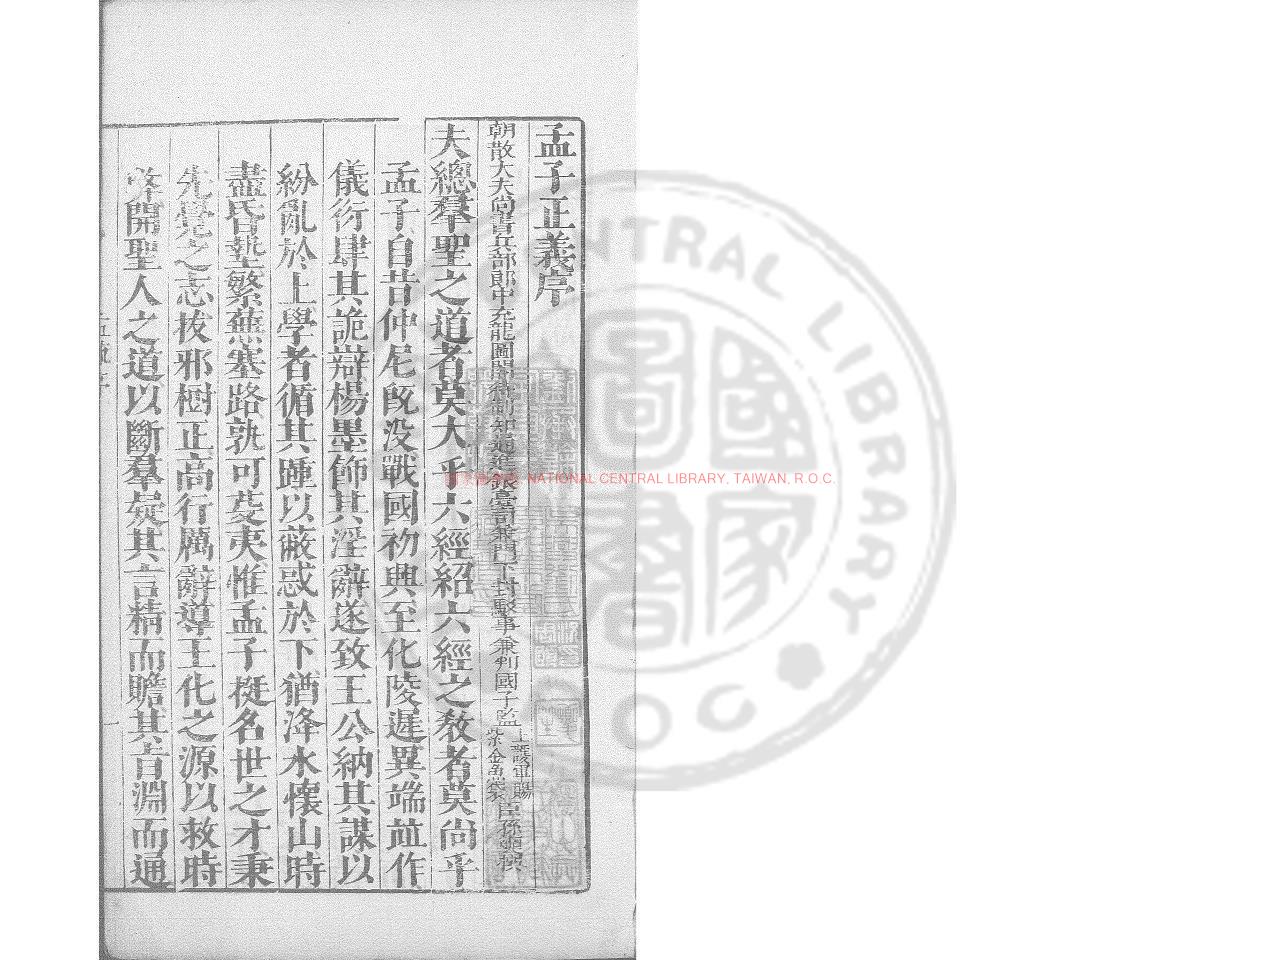 孟子正義序
朝散大夫尚書兵部郎中充龍圖閣待制知通進銀臺司兼門下封駮事兼判國子監上護軍賜紫金魚袋臣孫奭撰
夫總羣聖之道者莫大乎六經紹六經之敎者莫尚乎
孟子自昔仲尼旣没戰國初興至化陵遲異端並作
儀衍肆其詭辯楊墨飾其淫辭遂致王公納其謀以
紛亂於上學者循其踵以蔽惑於下猶洚水懷山時
盡昏墊繁蕪塞路孰可芟夷惟孟子挺名世之才秉
先覺之志拔邪樹正高行厲辭導王化之源以救時
弊開聖人之道以斷羣疑其言精而贍其旨淵而通
國家圖書館 NATIONAL CENTRAL LIBRARY, TAIWAN, R.O.C.
CENTRAL LIBRARY
R.O.C